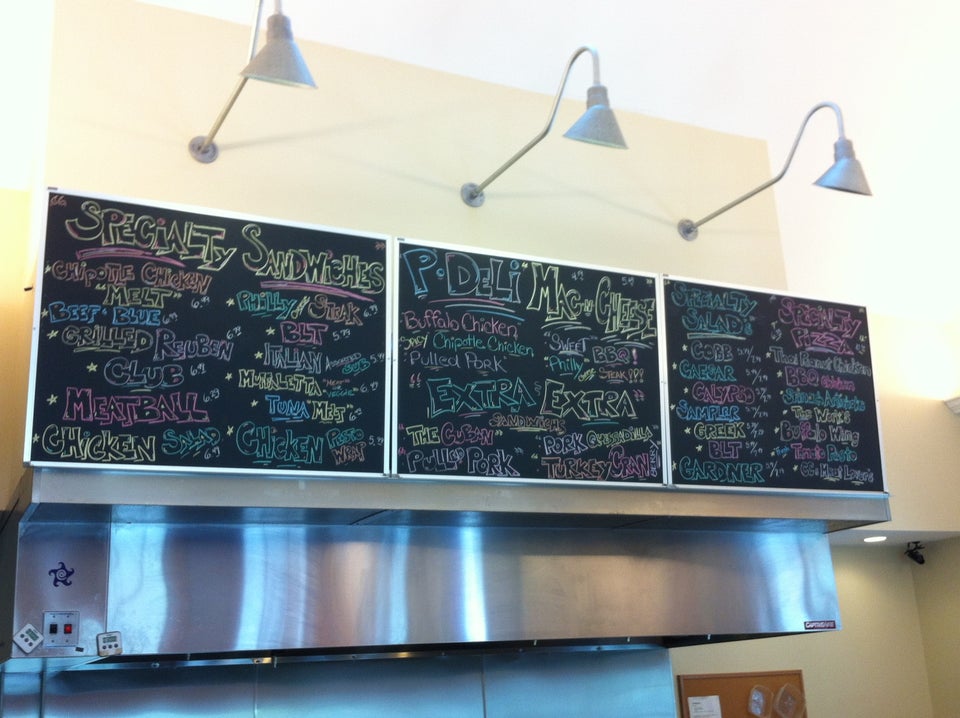 "Specialty Sandwiches"
Chipotle Chicken
"Melt" 6.99
Beef & Blue 6.99
Grilled Reuben 6.99
Club 6.99
Meatball 6.99
Chicken Salad 6.99
Philly Steak 6.99
BLT 5.79
Italian Assorted Sub 5.99
Muffaletta
Tuna Melt 6.49
Chicken Pesto Wrap 5.99
P·Deli "Mac-n-Cheese"
Buffalo Chicken
Spicy Chipotle Chicken
Pulled Pork
Sweet BBQ!
Philly Steak!!!
"Extra Extra"
Sandwichs
"The Cuban"
"Pulled Pork
"Pork Quesadilla
Turkey Cran
Specialty Salads
Cobb
Caesar
Calypso
Sampler
Greek
BLT
Gardner
Specialty Pizza
Thai Peanut Chicken
BBQ Chicken
Spinach Artichoke
The Works
Buffalo Wing
Tomato Pesto
Meat Lover's
CAPTIVEAIRE